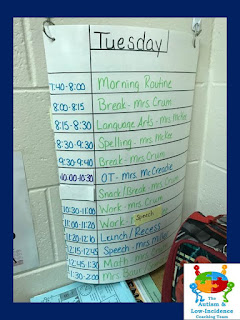 Tuesday
7:40-8:00 Morning Routine
8:00-8:15 Break- Mrs Crum
8:15-8:30 Language Arts - Mrs McKee
8:30-9:30 Spelling - Mrs McKee
9:30-9:40 Break- Mrs Crum
10:00-10:30 OT- Mrs. McCreadie
Snack/Break - Mrs Crum
10:30-11:00 Work - Mrs Crum
11:00-11:20 Work- Speech
11:20-12:10 Lunch / Recess
12:15-12:45 Speech- Mrs
12:45-1:30 Math- Mrs
1:30-2:00 Mrs
The
Autism &
Low-Incidence
Coaching Team